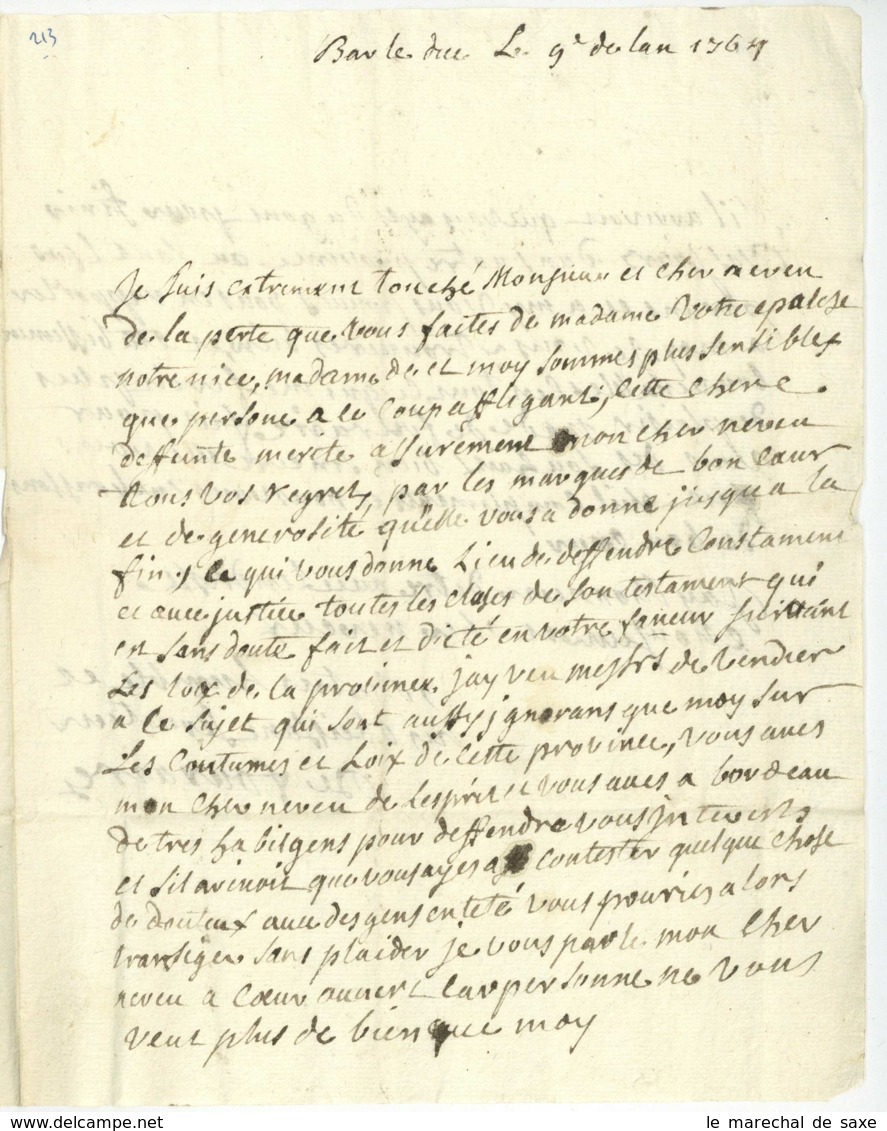 213
Bar le duc Le 9e de lan 1764
Je suis extremement touché Monsieur et cher neveu
de la perte que vous faites de madame votre epouse
notre niece, madame de et moy sommes plus sensibles
que persone a ce coup affligant, cette chere
deffunte merite assurement mon cher neveu
tous vos regrets par les marques de bon cœur
et de generosité quelle vous a donné jusqu a la
fin, ce qui vous donne Lieu de deffendre Constament
et avec justice toutes les closes de son testament qui
est sans doute fait et dicté en votre faveur suivant
Les loix de la province. jay veu messrs de vendier
a ce sujet qui sont aussy jgnorans que moy sur
Les Coutumes et Loix de cette province, vous aves
mon cher neveu de lesprit et vous aves a bordeau
de tres habil gens pour deffendre vous jnterets
et sil avinoit que vous ayes a contester quelque chose
de douteux avec des gens enteté vous pouries alors
transiger sans plaider je vous parle mon cher
neveu a Cœur ouvert car personne ne vous
veut plus de bien que moy
le marechal de saxe